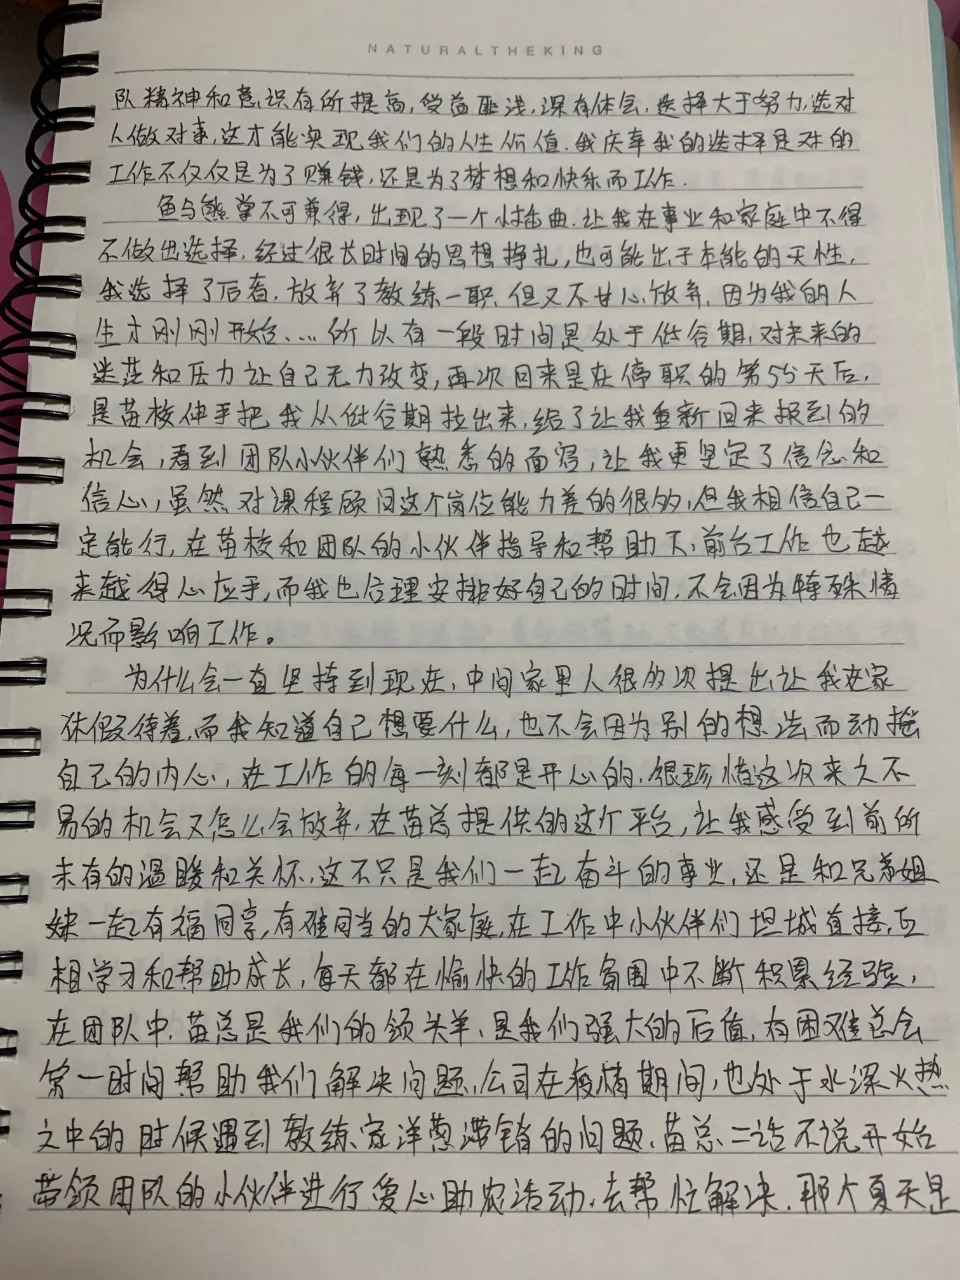 NATURALTHEKING
队精神和意识有所提高,受益匪浅,深有体会,选择大于努力,选对
人做对事,这才能实现我们的人生价值.我庆幸我的选择是对的
工作不仅仅是为了赚钱,还是为了梦想和快乐而工作.
鱼与熊掌不可兼得,出现了一个小插曲.让我在事业和家庭中不得
不做出选择,经过很长时间的思想挣扎,也可能出于本能的天性,
我选择了后者,放弃了教练一职,但又不甘心放弃,因为我的人
生才刚刚开始....所以有一段时间是处于低谷期,对未来的
迷茫和压力让自己无力改变,再次回来是在停职的第55天后,
是苗校伸手把我从低谷期拉出来,给了让我重新回来报到的
机会,看到团队小伙伴们熟悉的面容,让我更坚定了信念和
信心,虽然对课程顾问这个岗位能力差的很多,但我相信自己一
定能行,在苗校和团队的小伙伴指导和帮助下,前台工作也越
来越得心应手,而我也合理安排好自己的时间,不会因为特殊情
况而影响工作。
为什么会一直坚持到现在,中间家里人很多次提出让我在家
休假待着,而我知道自己想要什么,也不会因为别的想法而动摇
自己的内心,在工作的每一刻都是开心的,很珍惜这次来之不
易的机会又怎么会放弃,在苗总提供的这个平台,让我感受到前所
未有的温暖和关怀,这不只是我们一起奋斗的事业,还是和兄弟姐
妹一起有福同享,有难同当的大家庭,在工作中小伙伴们坦城直接,互
相学习和帮助成长,每天都在愉快的工作氛围中不断积累经验,
在团队中,苗总是我们的领头羊,是我们强大的后盾,有困难总会
第一时间帮助我们解决问题,公司在疫情期间,也处于水深火热
之中的时候遇到教练家洋葱滞销的问题,苗总二话不说开始
带领团队的小伙伴进行爱心助农活动,去帮忙解决,那个夏天是